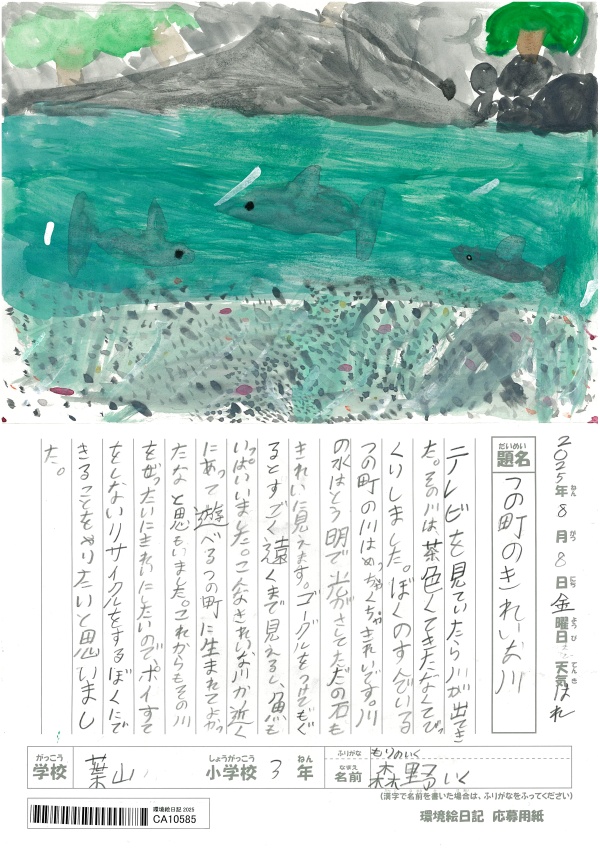 2025年8月8日金曜日 天気はれ
ねん がつ にち ようび てんき
だいめい
題名
つの町のきれいな川
テレビを見ていたら川が出てき
た。その川は茶色くてきたなくてびっ
くりしました。ぼくのすんでいる
つの町の川はめっちゃくちゃきれいです。川
の水はとう明で光がさしてただの石も
きれいに見えます。ゴーグルをつけてもぐ
るとすごく遠くまで見えるし、魚も
いっぱいいました。こんなきれいな川が近く
にあって遊べるつの町に生まれてよかっ
たなと思もいました。これからもその川
をぜったいにきれいにしたいので、ポイすて
をしないリサイクルをするぼくにで
きることをやりたいと思いまし
た。
がっこう しょうがっこう ねん ふりがな もりのいく
学校 葉山 小学校 3年 なまえ 名前 森野いく
(漢字で名前を書いた場合は、ふりがなをふってください)
環境絵日記 2025
CA10585
環境絵日記 応募用紙